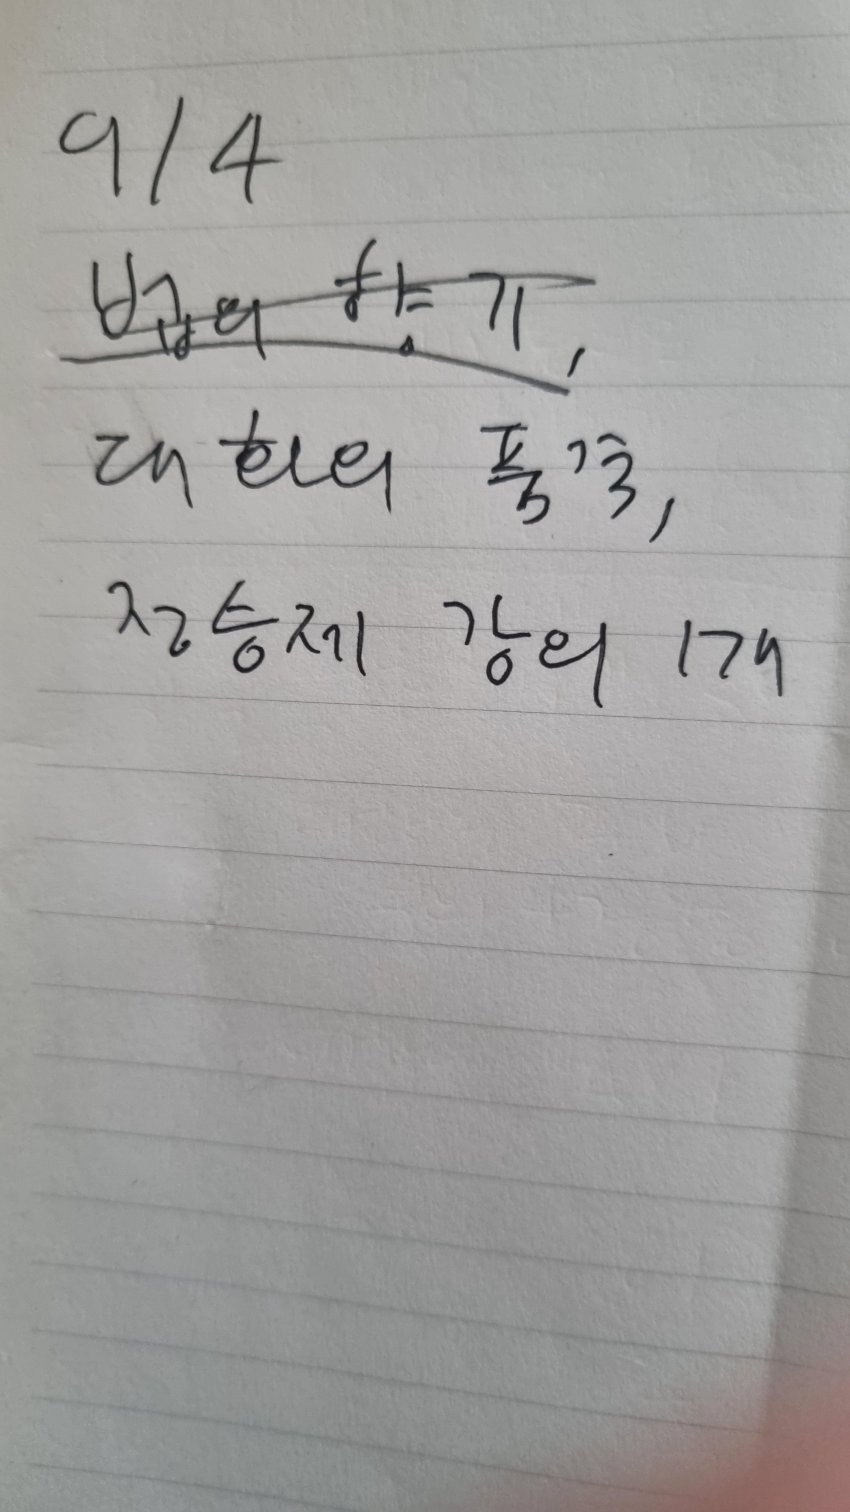 9/4
법의 향기,
대화의 품격,
정승제 강의 1개